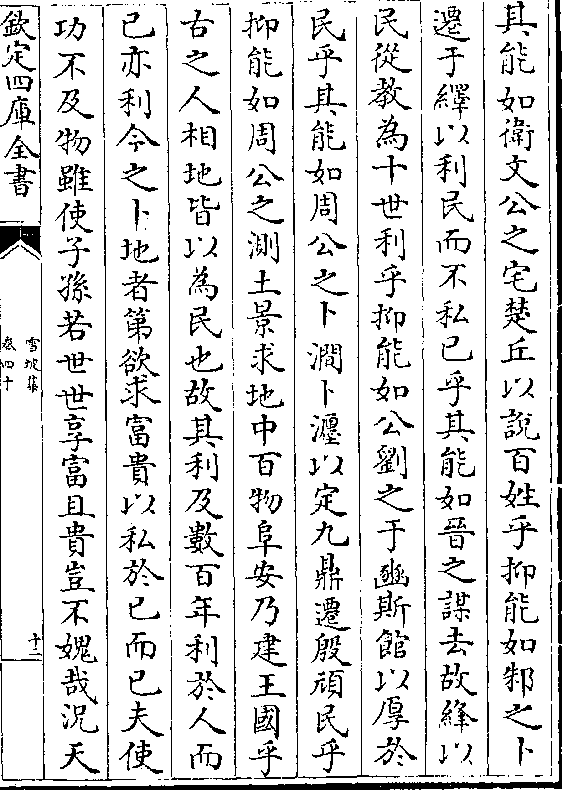 其能如衛文公之宅楚丘以說百姓乎抑能如邾之卜
遷于繹以利民而不私已乎其能如晉之謀去故絳以
民從教為十世利乎抑能如公劉之于豳斯館以厚於
民乎其能如周公之卜澗卜瀍以定九鼎遷殷頑民乎
抑能如周公之測土景求地中百物阜安乃建王國乎
古之人相地皆以為民也故其利及數百年利於人而
已亦利今之卜地者第欲求富貴以私於已而已夫使
功不及物雖使子孫若世世享富且貴豈不媿哉況天
欽定四庫全書
雪坡集
卷四十
十二